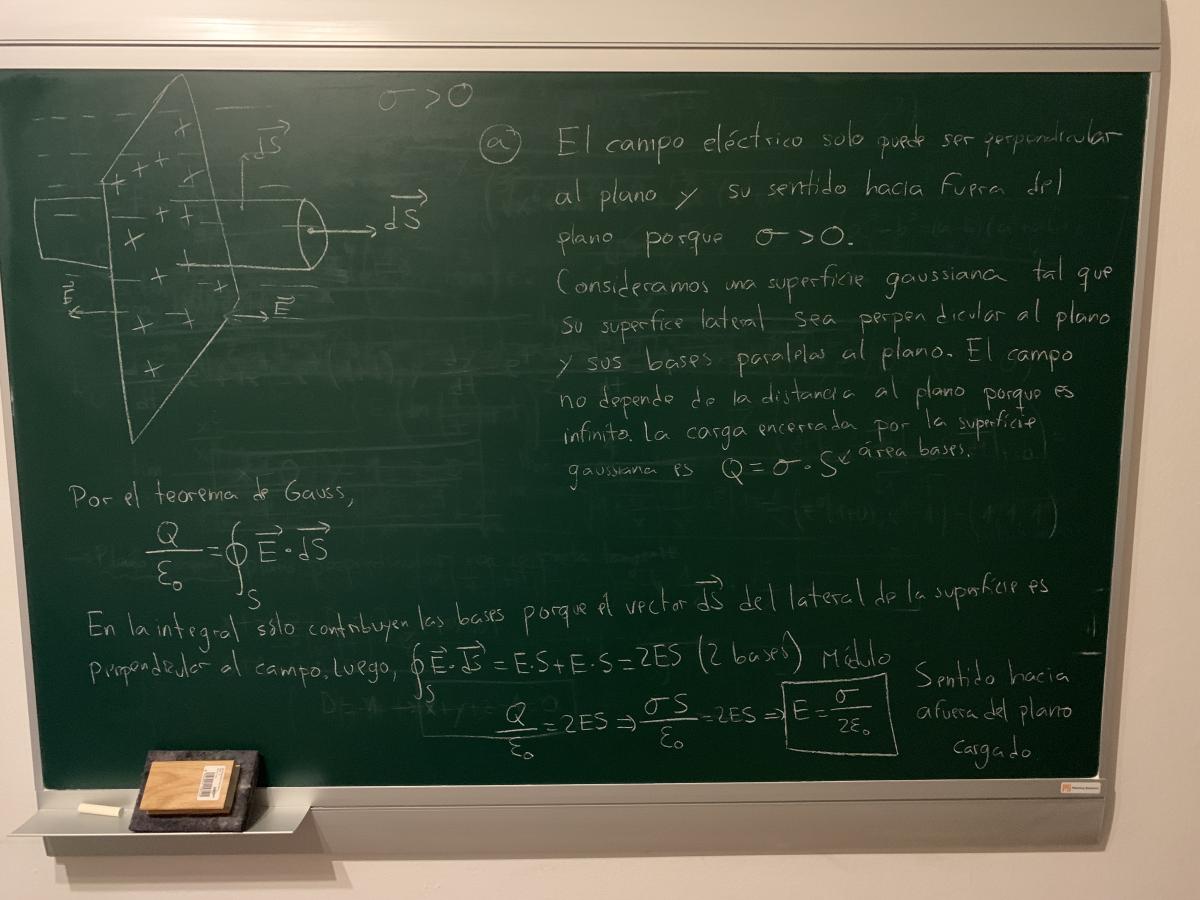 σ > 0
dS
dS
E
E
a) El campo eléctrico solo puede ser perpendicular
al plano y su sentido hacia fuera del
plano porque σ > 0.
Consideramos una superficie gaussiana tal que
su superfice lateral sea perpendicular al plano
y sus bases paralelas al plano. El campo
no depende de la distancia al plano porque es
infinito. La carga encerrada por la superficie
gaussiana es Q = σ · S ↙ área bases.
Por el teorema de Gauss,
Q/ε₀ = ∮_S E⃗ · dS⃗
En la integral sólo contribuyen las bases porque el vector dS⃗ del lateral de la superficie es
perpendicular al campo. Luego, ∮_S E⃗ · dS⃗ = E·S + E·S = 2ES (2 bases)
Q/ε₀ = 2ES ⇒ σS/ε₀ = 2ES ⇒ E = σ/2ε₀
Módulo
Sentido hacia
afuera del plano
cargado.